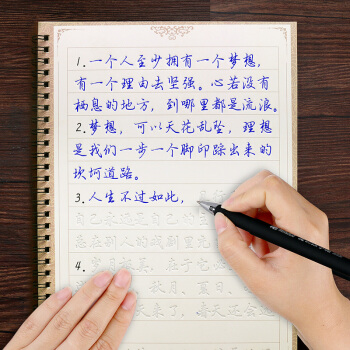 1.一个人至少拥有一个梦想,
有一个理由去坚强。心若没有
栖息的地方,到哪里都是流浪。
2.梦想,可以天花乱坠,理想
是我们一步一个脚印踩出来的
坎坷道路。
3.人生不过如此,
自己永远是自己的
在别人的戏剧里充
4.岁月极美,在于它
秋月、夏日、
来了,春天还会远